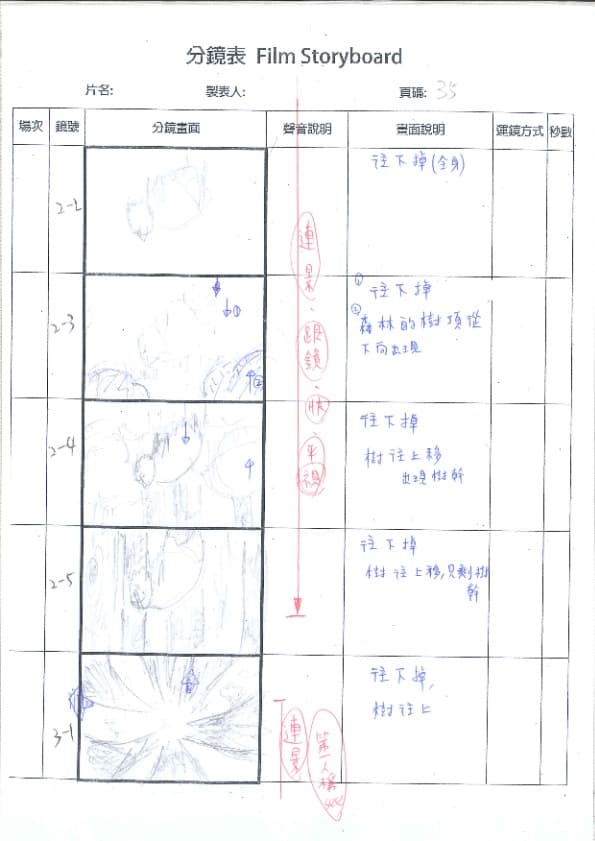 分鏡表 Film Storyboard
片名:
製表人:
頁碼: 35
場次 鏡號 分鏡畫面 聲音說明 畫面說明 運鏡方式 秒數
2-2
往下掉(全身)
2-3
① 往下掉
② 森林的樹頂從
下向出現
①
②
2-4
往下掉
樹往上移
出現樹幹
2-5
往下掉
樹往上移,只剩樹
幹
連景、跟鏡、
平視
3-1
往下掉,
樹往上
連景
第一人稱